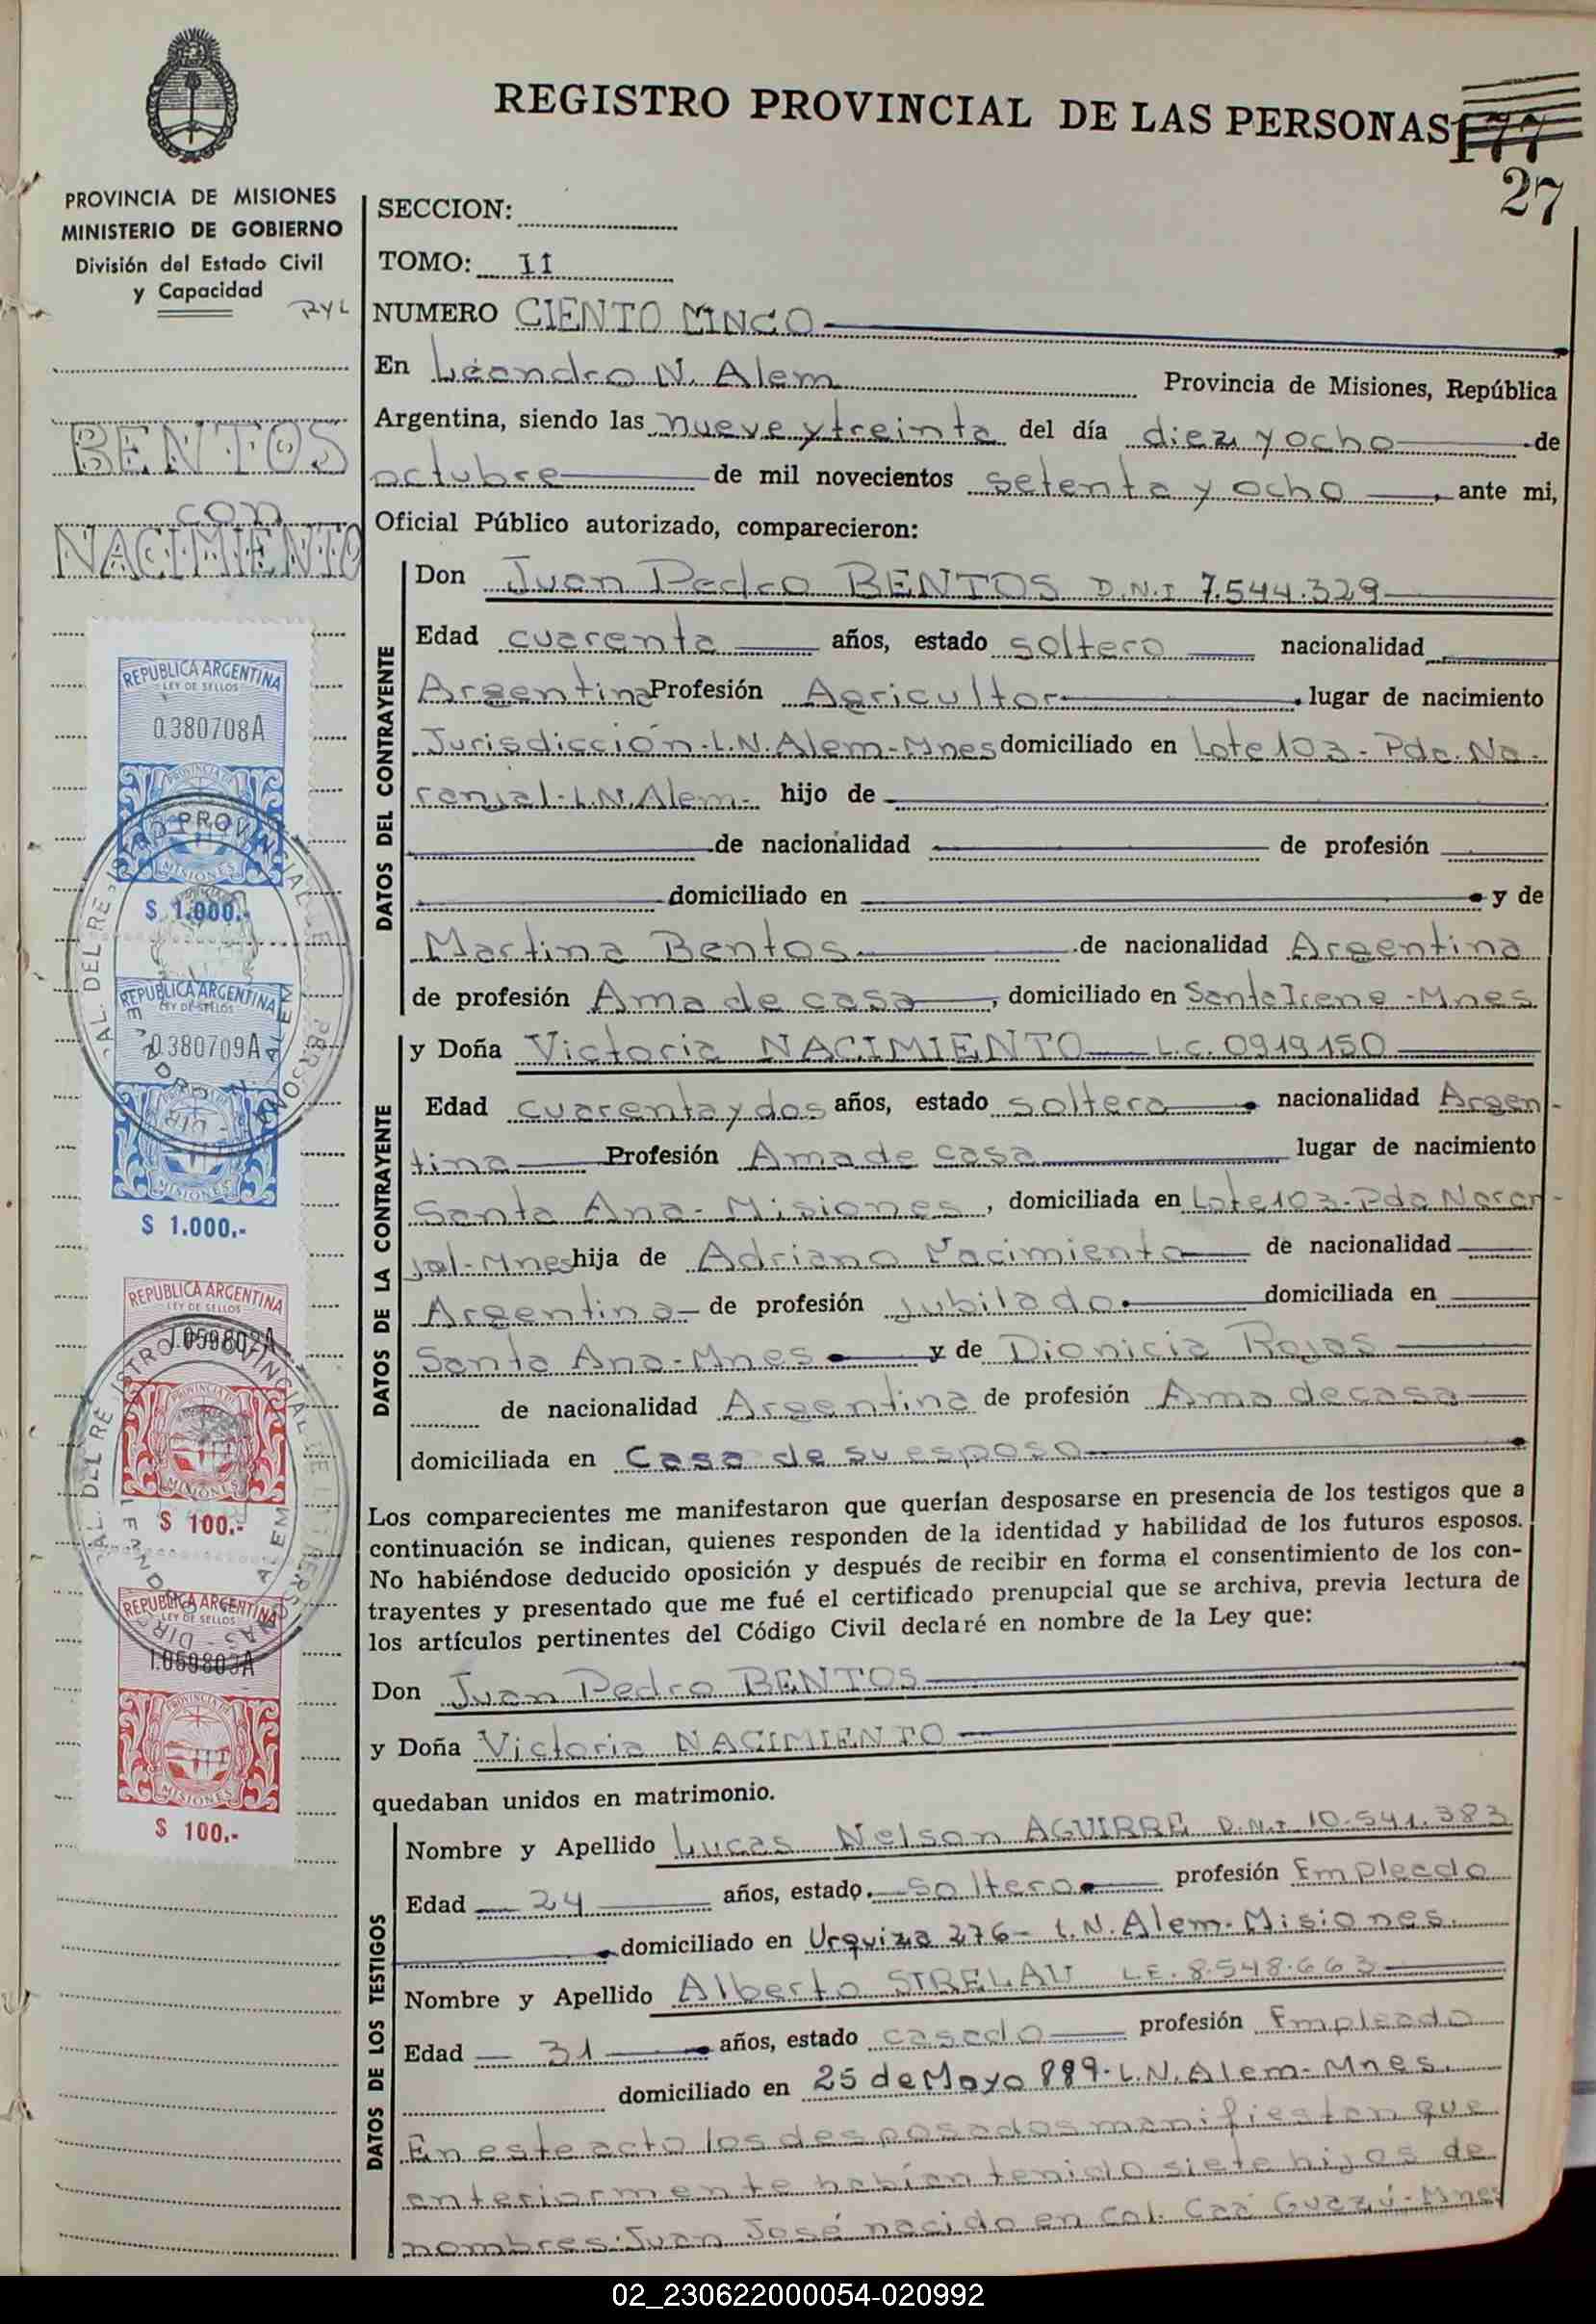 REGISTRO PROVINCIAL DE LAS PERSONAS
177
27
PROVINCIA DE MISIONES
MINISTERIO DE GOBIERNO
División del Estado Civil
y Capacidad
BENTOS
con
NACIMIENTO
REPUBLICA ARGENTINA
LEY DE SELLOS
0.380708A
PROVINCIA DE
MISIONES
$ 1.000.-
REPUBLICA ARGENTINA
LEY DE SELLOS
0.380709A
MISIONES
$ 1.000.-
REPUBLICA ARGENTINA
LEY DE SELLOS
1.059802A
PROVINCIA DE
MISIONES
$ 100.-
REPUBLICA ARGENTINA
LEY DE SELLOS
1.059803A
PROVINCIA DE
MISIONES
$ 100.-
SECCION:
TOMO: II
NUMERO CIENTO CINCO
En Leandro N. Alem Provincia de Misiones, República
Argentina, siendo las nueve y treinta del día diez y ocho de
octubre de mil novecientos setenta y ocho, ante mi,
Oficial Público autorizado, comparecieron:
DATOS DEL CONTRAYENTE
Don Juan Pedro BENTOS D.N.I 7.544.329
Edad cuarenta años, estado soltero nacionalidad
Argentina Profesión Agricultor lugar de nacimiento
Jurisdicción-L.N.Alem-Mnes domiciliado en Lote 103-Pdo. Na-
ranjal-L.N.Alem- hijo de
de nacionalidad de profesión
domiciliado en y de
Martina Bentos de nacionalidad Argentina
de profesión Ama de casa, domiciliado en Santa Irene-Mnes
DATOS DE LA CONTRAYENTE
y Doña Victoria NACIMIENTO L.C. 0919150
Edad cuarenta y dos años, estado soltera nacionalidad Argen-
tina Profesión Ama de casa lugar de nacimiento
Santa Ana-Misiones, domiciliada en Lote 103-Pdo Naran-
jal-Mnes hija de Adriano Nacimiento de nacionalidad
Argentina de profesión jubilado. domiciliada en
Santa Ana-Mnes y de Dionicia Rojas
de nacionalidad Argentina de profesión Ama de casa
domiciliada en Casa de su esposo
Los comparecientes me manifestaron que querían desposarse en presencia de los testigos que a
continuación se indican, quienes responden de la identidad y habilidad de los futuros esposos.
No habiéndose deducido oposición y después de recibir en forma el consentimiento de los con-
trayentes y presentado que me fué el certificado prenupcial que se archiva, previa lectura de
los artículos pertinentes del Código Civil declaré en nombre de la Ley que:
Don Juan Pedro BENTOS
y Doña Victoria NACIMIENTO
quedaban unidos en matrimonio.
DATOS DE LOS TESTIGOS
Nombre y Apellido Lucas Nelson AGUIRRE D.N.I 10.541.383
Edad 24 años, estado soltero profesión Empleado
domiciliado en Urquiza 276- L.N. Alem-Misiones.
Nombre y Apellido Alberto STRELAU L.E. 8.548.663
Edad 31 años, estado casado profesión Empleado
domiciliado en 25 de Mayo 889-L.N. Alem-Mnes.
En este acto los desposados manifiestan que
anteriormente habían tenido siete hijos de
nombres: Juan José nacido en Col. Caá Guazú-Mnes
02_230622000054-020992